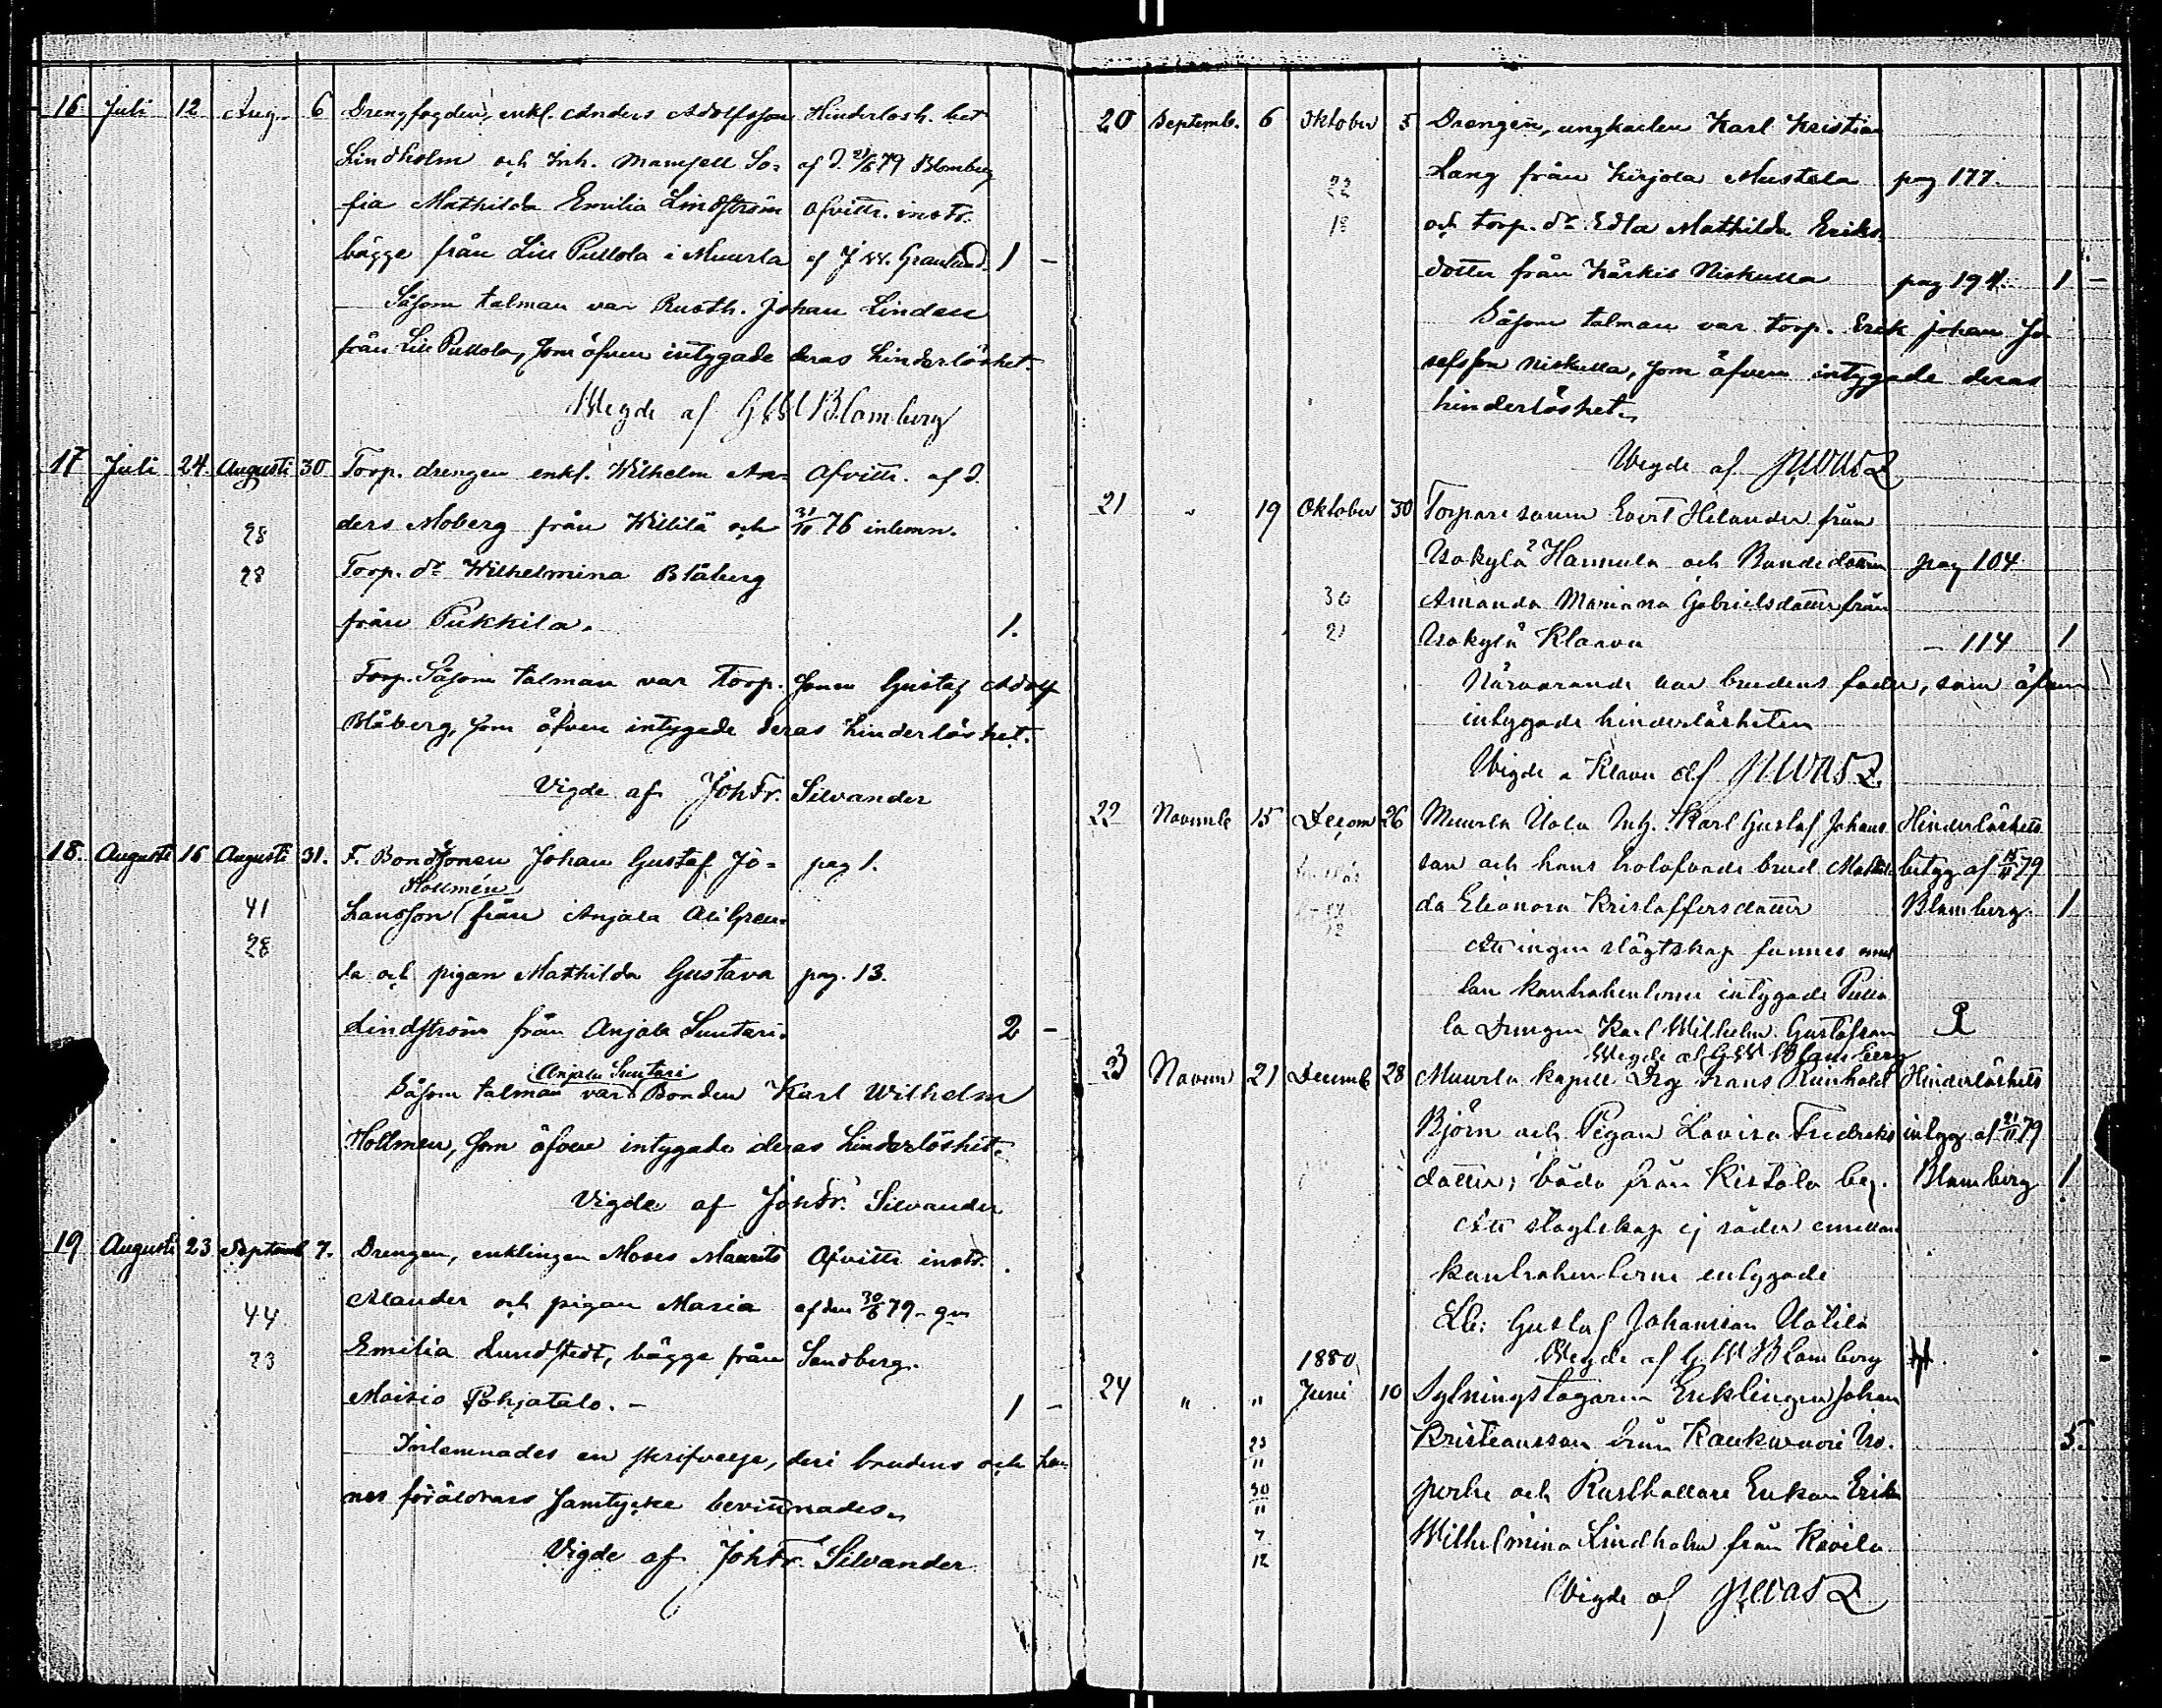 16 Juli 12 Aug. 6 Drengfogden, enkl. Anders Adolfsson Hinderlösh. bet
Lindholm och Inh. Mamsell So= af d. 21/6 79 Blomberg
fia Mathilda Emilia Lindström Afvittr. instr.
bägge från Lill Pullola i Muurla af J. W. Granlund. 1 –
Såsom talman var Rusth. Johan Linden
från Lill Pullola, som öfven intygade deras hinderlöshet.
Wegde af G W Blomberg
17 Juli 24 Augusti 30 Torp. drengen enkl. Wilhelm An= Afvittr. af d.
28 ders Moberg från Willilä och 31/10 76 inlemn.
28 Torp. dr Wilhelmina Blåberg
från Pukkila. 1.
Torp. Såsom talman var torp. sonen Gustaf Adolf
Blåberg, som öfven intygade deras hinderlöshet.
Vigde af Joh Fr. Silvander
18. Augusti 16 Augusti 31. F. Bondsonen Johan Gustaf Jo= pag 1.
Hollmén
41 hansson från Anjala Alikreu=
28
la och pigan Mathilda Gustava pag. 13.
Lindström från Anjala Suutari. 2 –
Anjala Suutari
Såsom talman var Bonden Karl Wilhelm
Hollmen, som öfven intygade deras hinderlöshet.
Vigde af Joh Fr. Silvander
19 Augusti 23 Septemb 7. Drengen, enklingen Moses Maurits Afvittr instr.
44 Alander och pigan Maria af den 30/6 79 gm
23 Emilia Lundstedt, bägge från Sandberg.
Moisio Pohjatalo. – 1 –
Inlemnades en skrifvelse, deri brudens och hen
nes föräldrars samtycke bevittnades.
Vigde af Joh Fr. Silvander
20 Septemb. 6 Oktober 5 Drengen, ungkarlen Karl Kristian
22 Lang från Kirjola Mustala pag 177.
18 och torp. dr Edla Mathilda Eriks
dotter från Kärkis Niskulla pag 191. 1 –
Såsom talman var torp. Erik Johan Jo
sefsson Niskulla, som öfven intygade deras
hinderlöshet.
Wegde af
21 " 19 Oktober 30 Torparesonen Evert Helander från
Isokylä Hannula och Bondedottren pag 104
30 Amanda Mariana Gabrielsdotter från
21 Isokylä Klaavu – 114 1
Närvarande var brudens fader, som äfven
intygade hinderlösheten
Wigde a Klavu af
22 Novemb 15 Decem 26 Muurla Uola Inh. Karl Gustaf Johans Hinderlöshets
son och hans trolofvade brud Mathil betyg af 15/11 79
da Eleonora Kristoffersdotter Blomberg. 1
Att ingen slägtskap funnes emel
lan kontrahenterne intygade Pullo
la Drengen Karl Wilhelm Gustafsson
Wegde af G W Blomberg
23 Novem 21 Decemb 28 Muurla kapell Drg Frans Reinhold Hinderlöshets
Björn och Pigan Lovisa Fredriks intyg af 21/11 79
dotter, båda från Kistola by. Blomberg 1
Att slägtskap ej råder emellan
kontrahenterne intygade
Gustaf Johansson Uotila
1880 Wegde af G W Blomberg
24 " " Juni 10 Sytningstagaren Enklingen Johan
23/11 Kristiansson från Kaukwuori Iso. 5.
30/11 perhe och Rusthållare Enkan Erika
7/12 Wilhelmina Lindholm från Kavila
Vigde af